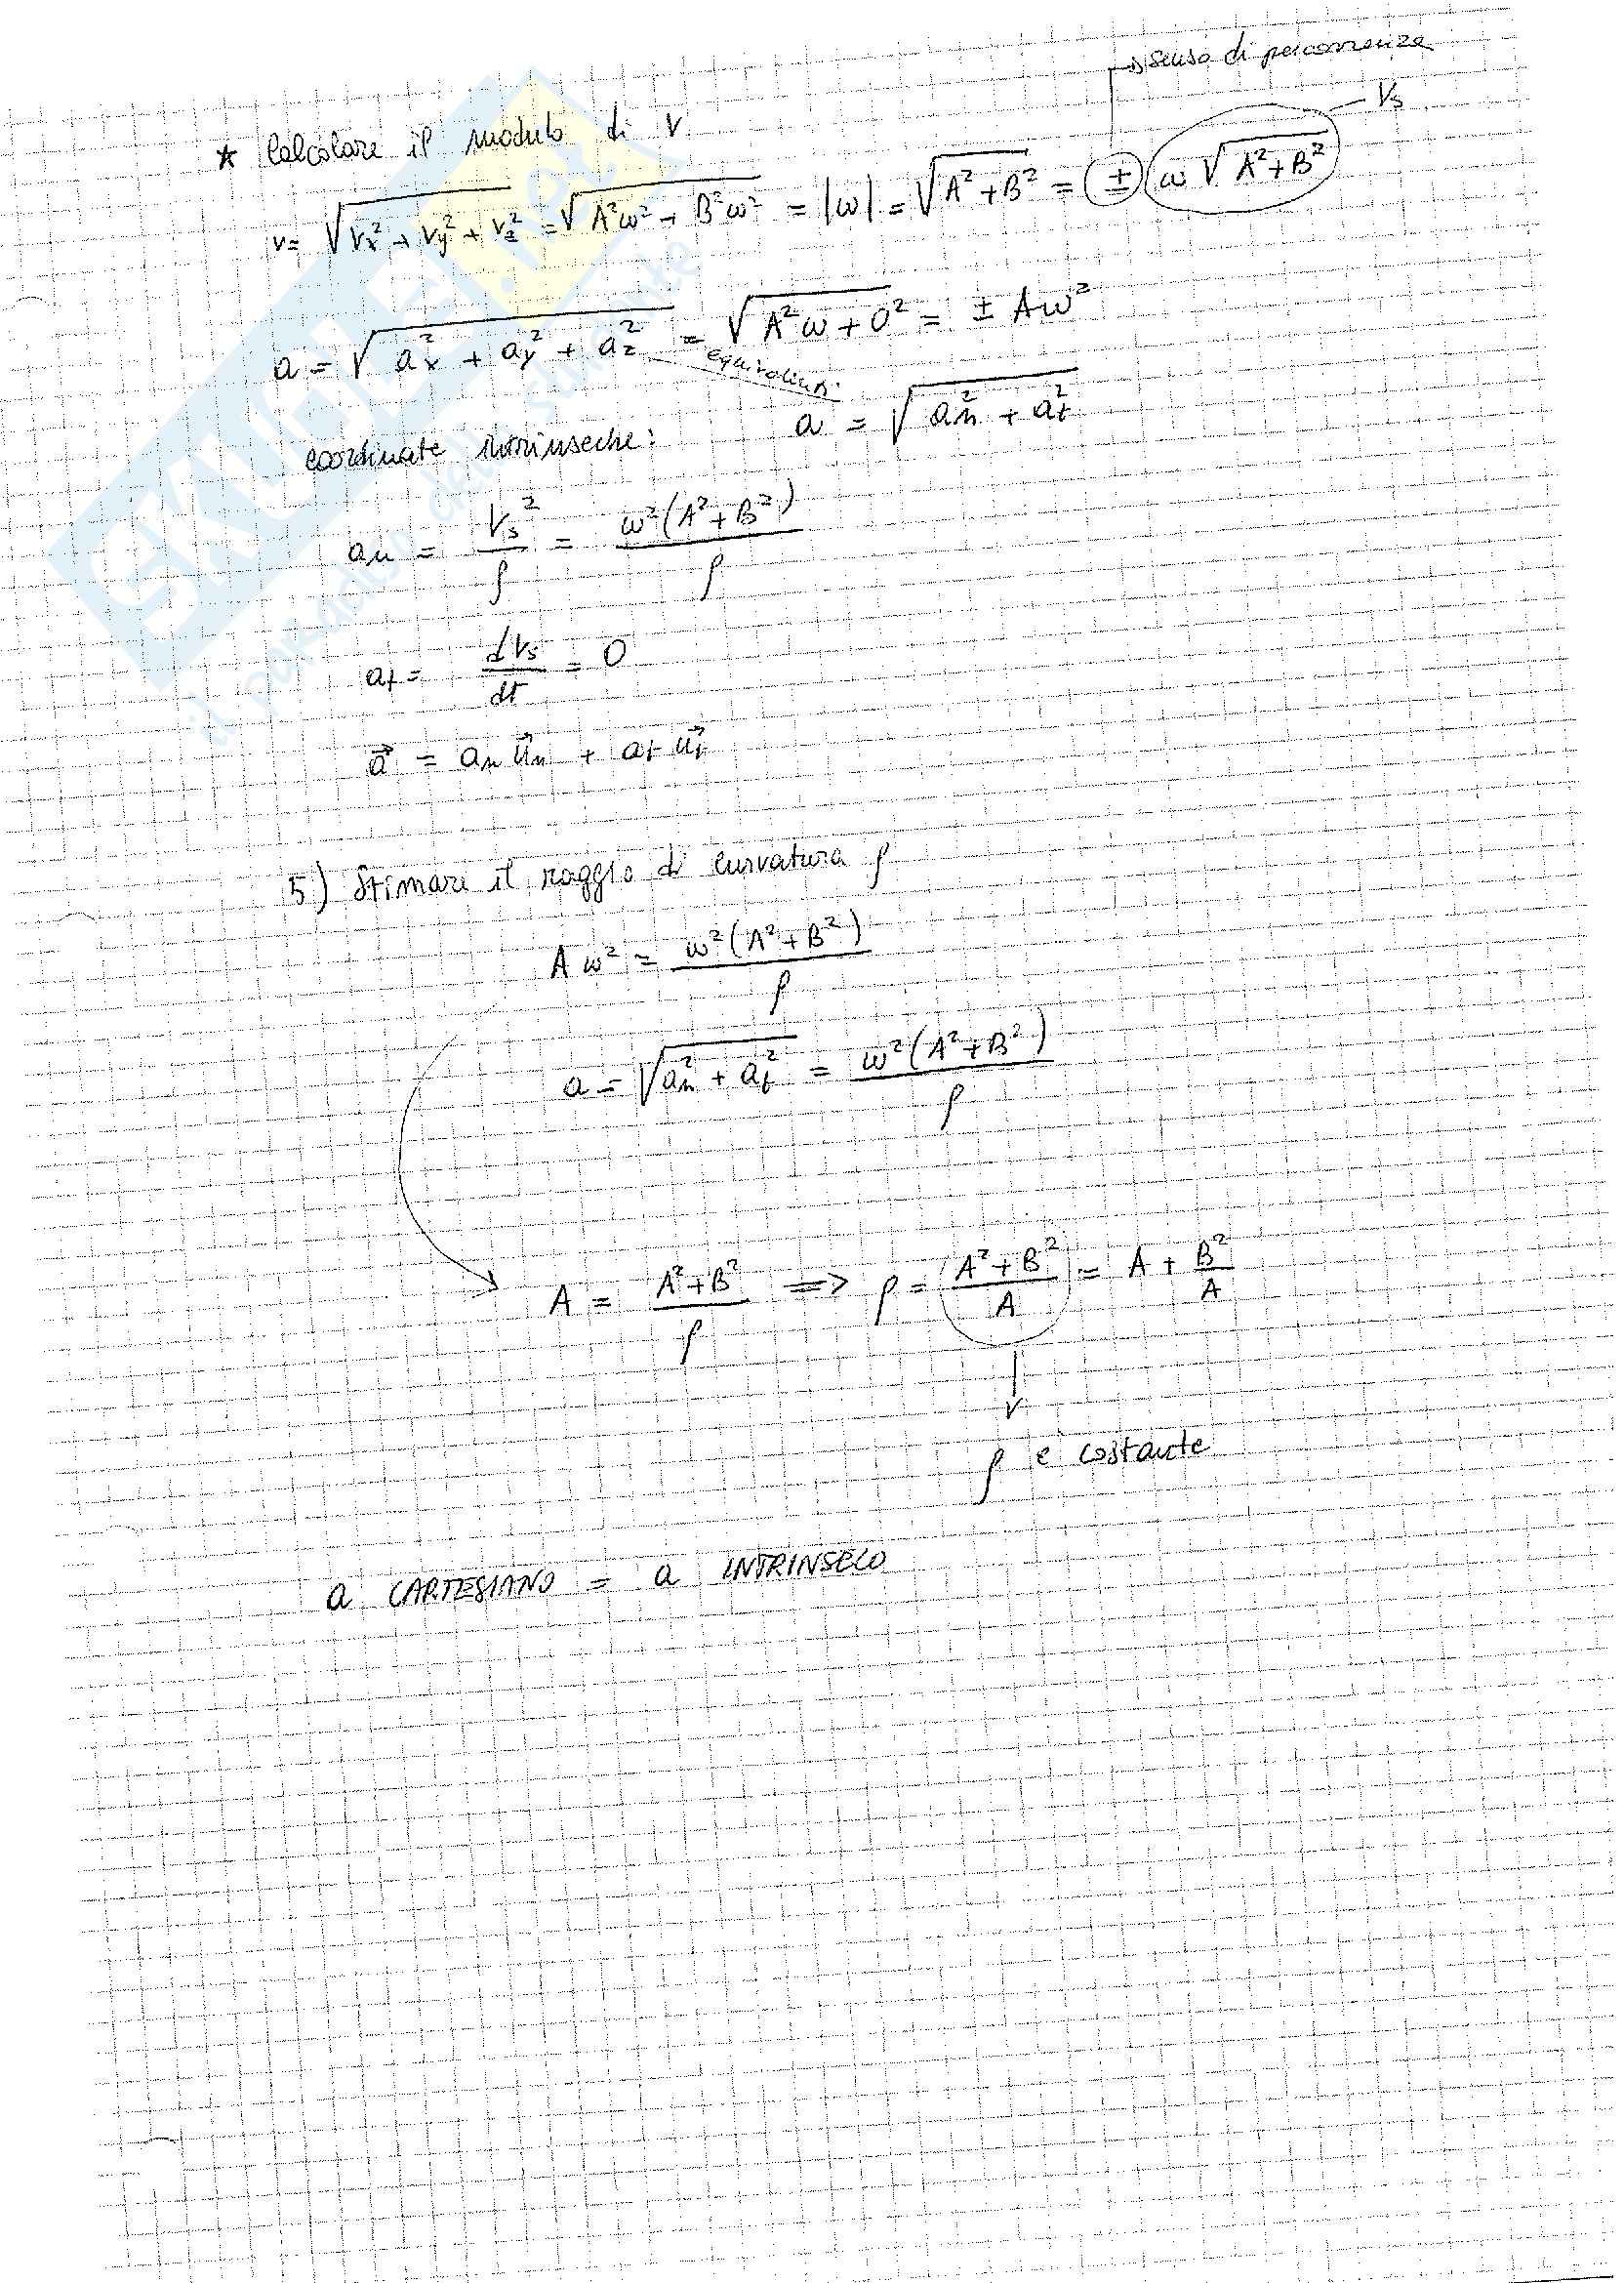 → senso di percorrenza
* Calcolare il modulo di V
Vs
v = √(Vx² + Vy² + Vz²) = √(A²ω² + B²ω²) = |ω| = √(A²+B²) = ± ω √(A²+B²)
a = √(ax² + ay² + az²) = √(A²ω + 0²) = ± Aω²
equivalenti
coordinate intrinseche: a = √(an² + at²)
an = Vs²/ρ = ω²(A²+B²)/ρ
at = dVs/dt = 0
a⃗ = an u⃗n + at u⃗t
5) Stimare il raggio di curvatura ρ
Aω² = ω²(A²+B²)/ρ
a = √(an² + at²) = ω²(A²+B²)/ρ
A = (A²+B²)/ρ => ρ = (A²+B²)/A = A + B²/A
ρ è costante
a CARTESIANO = a INTRINSECO